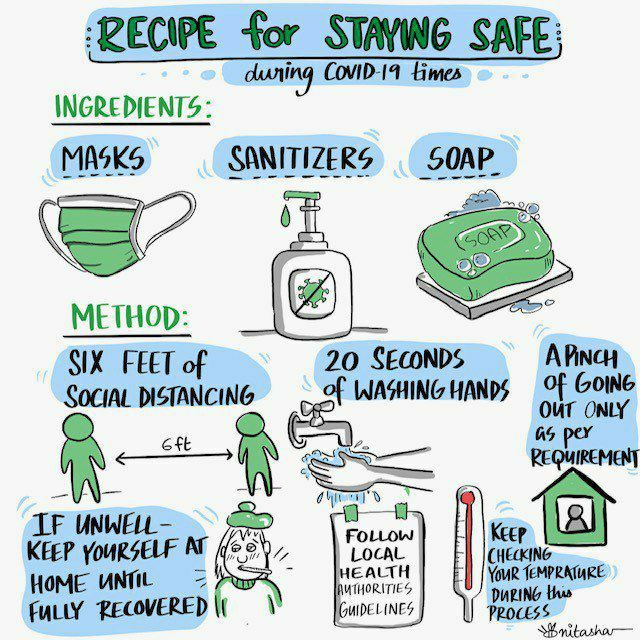 RECIPE for STAYING SAFE
during COVID-19 times
INGREDIENTS:
MASKS
SANITIZERS
SOAP
SOAP
METHOD:
SIX FEET of
SOCIAL DISTANCING
6 ft
20 SECONDS
of WASHING HANDS
A PINCH
of GOING
OUT ONLY
as per
REQUIREMENT
IF UNWELL-
KEEP YOURSELF AT
HOME UNTIL
FULLY RECOVERED
FOLLOW
LOCAL
HEALTH
AUTHORITIES
GUIDELINES
KEEP
CHECKING
YOUR TEMPRATURE
DURING this
PROCESS